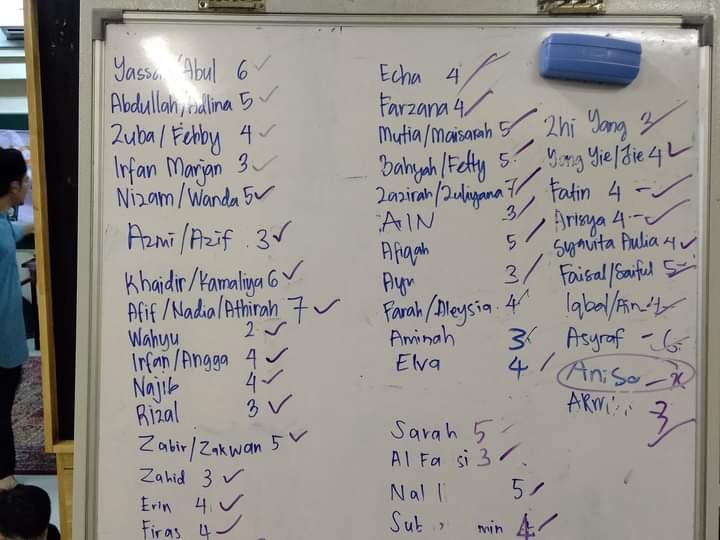 Yassar/Abul 6 ✓
Abdullah/Adlina 5 ✓
Zuba/Fehby 4 ✓
Irfan Marjan 3 ✓
Nizam/Wanda 5 ✓
Azmi/Azif 3 ✓
Khaidir/Kamaliya 6 ✓
Afif/Nadia/Athirah 7 ✓
Wahyu 2 ✓
Irfan/Angga 4 ✓
Najib 4 ✓
Rizal 3 ✓
Zabir/Zakwan 5 ✓
Zahid 3 ✓
Erin 4 ✓
Firas 4 ✓
Echa 4
Farzana 4
Mutia/Maisarah 5
Bahyah/Fetty 5
Zazirah/Zuliyana 7
AIN 3
Afiqah 5
Ayu 3
Farah/Aleysia 4
Aminah 3
Elva 4
Sarah 5
Al Fa si 3
Nal 5
Sub min 4
Zhi Yang
Yong Yie/Jie 4 ✓
Fatin 4 - ✓
Arisya 4 - ✓
Syavita Aulia 4 ✓
Faisal/Saiful 5
Iqbal/Ain 4
Asyraf - 6
Anisa - x
3